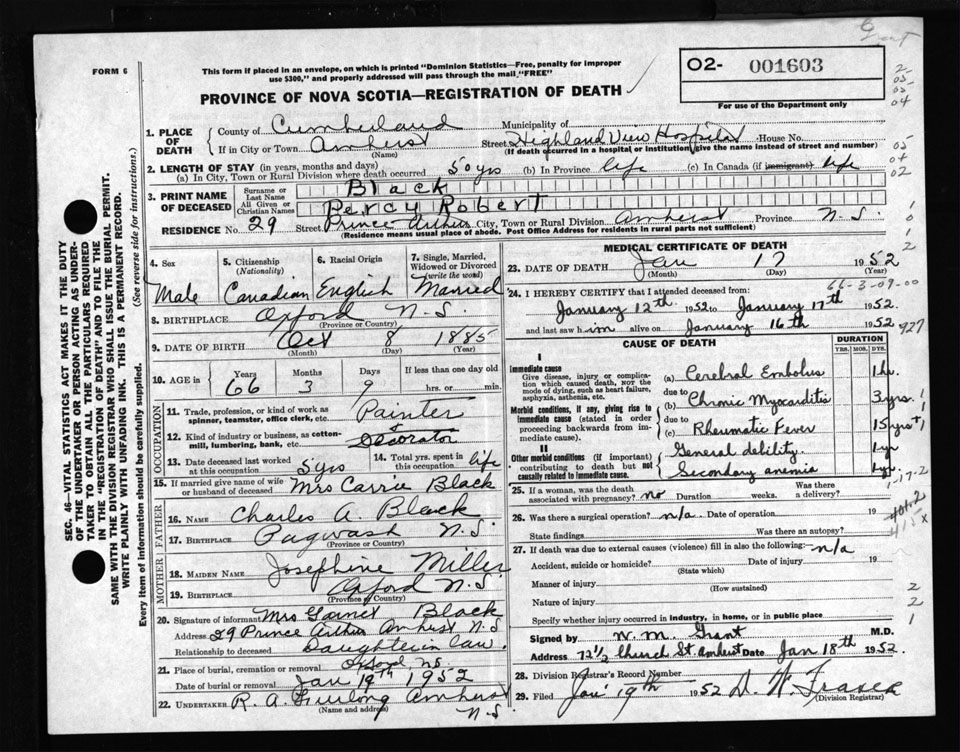 6
FORM 6
This form if placed in an envelope, on which is printed "Dominion Statistics—Free, penalty for improper
use $300," and properly addressed will pass through the mail "FREE"
PROVINCE OF NOVA SCOTIA—REGISTRATION OF DEATH
O2- 001603
For use of the Department only
2
05
03
04
05
04
02
1. PLACE OF DEATH
County of Cumberland Municipality of
If in City or Town Amherst Street Highland View Hospital House No.
(Name) (If death occurred in a hospital or institution, give the name instead of street and number)
2. LENGTH OF STAY (in years, months and days)
(a) In City, Town or Rural Division where death occurred 50 yrs (b) In Province life (c) In Canada (if immigrant) life
3. PRINT NAME OF DECEASED
Surname or Last Name Black
All Given or Christian Names Percy Robert
RESIDENCE No. 29 Street Prince Arthur City, Town or Rural Division Amherst Province N.S.
(Residence means usual place of abode. Post Office Address for residents in rural parts not sufficient)
4. Sex
Male
5. Citizenship (Nationality)
Canadian
6. Racial Origin
English
7. Single, Married, Widowed or Divorced (write the word)
Married
8. BIRTHPLACE Oxford N.S.
(Province or Country)
9. DATE OF BIRTH Oct 8 1885
(Month) (Day) (Year)
10. AGE in Years Months Days If less than one day old
66 3 9 hrs. or min.
OCCUPATION
11. Trade, profession, or kind of work as spinner, teamster, office clerk, etc. Painter
12. Kind of industry or business, as cotton-mill, lumbering, bank, etc. & Decorator
13. Date deceased last worked at this occupation 5 yrs
14. Total yrs. spent in this occupation life
15. If married give name of wife or husband of deceased Mrs Carrie Black
FATHER
16. NAME Charles A. Black
17. BIRTHPLACE Pugwash N.S.
(Province or Country)
MOTHER
18. MAIDEN NAME Josephene Miller
19. BIRTHPLACE Oxford N.S.
(Province or Country)
20. Signature of informant Mrs Garnet Black
Address 29 Prince Arthur Amherst N.S
Relationship to deceased Daughter in law
21. Place of burial, cremation or removal Oxford N.S.
Date of burial or removal Jan 19th 1952
22. UNDERTAKER R. A. Furlong Amherst N.S.
(Name and address)
MEDICAL CERTIFICATE OF DEATH
23. DATE OF DEATH Jan 17 1952
(Month) (Day) (Year)
66-3-09-00
24. I HEREBY CERTIFY that I attended deceased from:
January 12th 1952 to January 17th 1952.
and last saw him alive on January 16th 1952
927
CAUSE OF DEATH
DURATION
YRS. MOS. DYS.
I
Immediate cause
Give disease, injury or complication which caused death, NOT the mode of dying, such as heart failure, asphyxia, asthenia, etc.
(a) Cerebral Embolus 1 hr.
due to
Morbid conditions, if any, giving rise to immediate cause (stated in order proceeding backwards from immediate cause).
(b) Chronic Myocarditis 3 yrs.
due to
(c) Rheumatic Fever 15 yrs +
II
Other morbid conditions (if important) contributing to death but not causally related to immediate cause.
General debility. 1 yr
Secondary anemia 1 yr.
25. If a woman, was the death associated with pregnancy? no Duration weeks. Was there a delivery?
26. Was there a surgical operation? n/a. Date of operation 19
State findings Was there an autopsy?
27. If death was due to external causes (violence) fill in also the following:— n/a
Accident, suicide or homicide? Date of injury 19
(State which)
Manner of injury
(How sustained)
Nature of injury
Specify whether injury occurred in industry, in home, or in public place
Signed by N. M. Grant M.D.
Address 72 1/2 Church St. Amherst Date Jan 18th 1952.
28. Division Registrar's Record Number
29. Filed Jan 19th 1952 D. W. Fraser
(Division Registrar)
SEC. 46—VITAL STATISTICS ACT MAKES IT THE DUTY
OF THE UNDERTAKER OR PERSON ACTING AS UNDER-
TAKER TO OBTAIN ALL THE PARTICULARS REQUIRED
IN THE "REGISTRATION OF DEATH" AND TO FILE THE
SAME WITH THE DIVISION REGISTRAR WHO SHALL ISSUE THE BURIAL PERMIT.
WRITE PLAINLY WITH UNFADING INK. THIS IS A PERMANENT RECORD.
Every item of information should be carefully supplied. (See reverse side for instructions.)